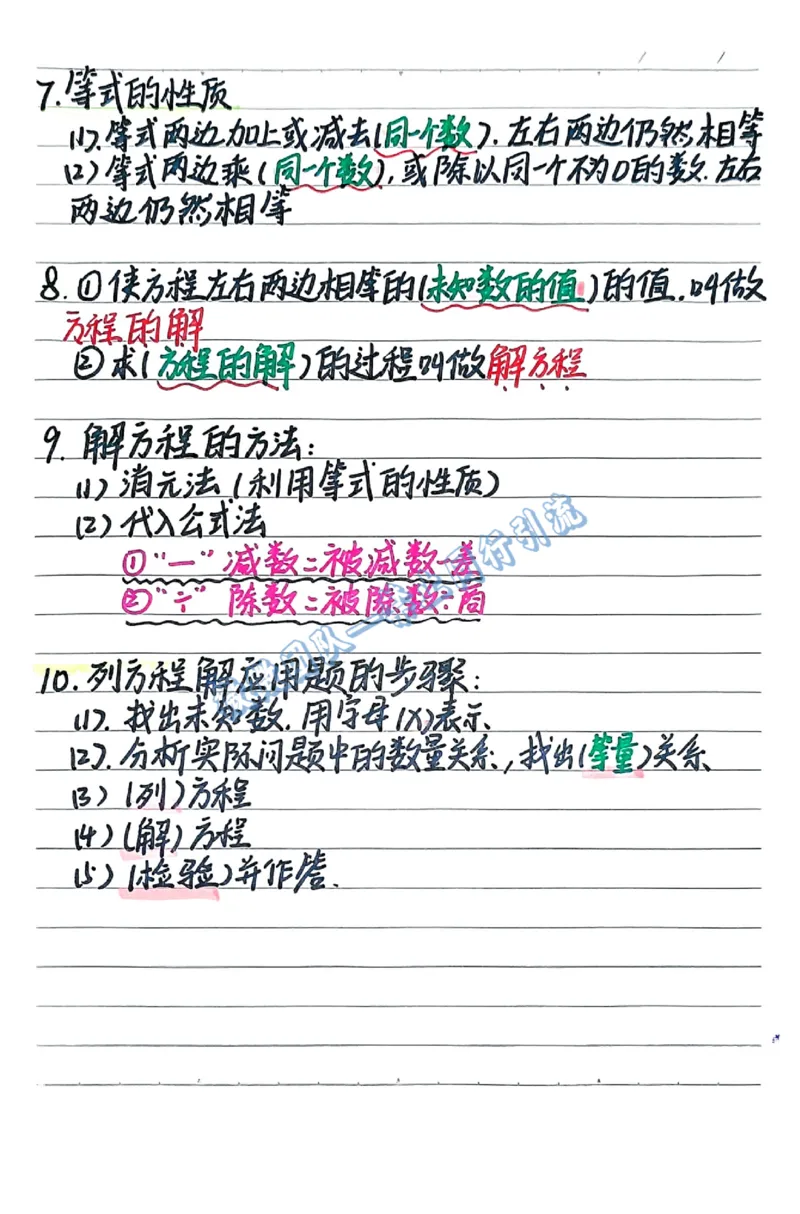 7.等式的性质
(1).等式两边加上或减去(同一个数).左右两边仍然相等
(2)等式两边乘(同一个数),或除以同一个不为0的数.左右
两边仍然相等
8.①使方程左右两边相等的(未知数的值)的值.叫做
方程的解
②求(方程的解)的过程叫做解方程
9.解方程的方法:
(1)消元法(利用等式的性质)
(2)代入公式法
①"一"减数=被减数-差
②"÷"除数=被除数÷商
10.列方程解应用题的步骤:
(1).找出未知数.用字母(X)表示
(2).分析实际问题中的数量关系,找出(等量)关系
(3)(列)方程
(4)(解)方程
(5)(检验)并作答.